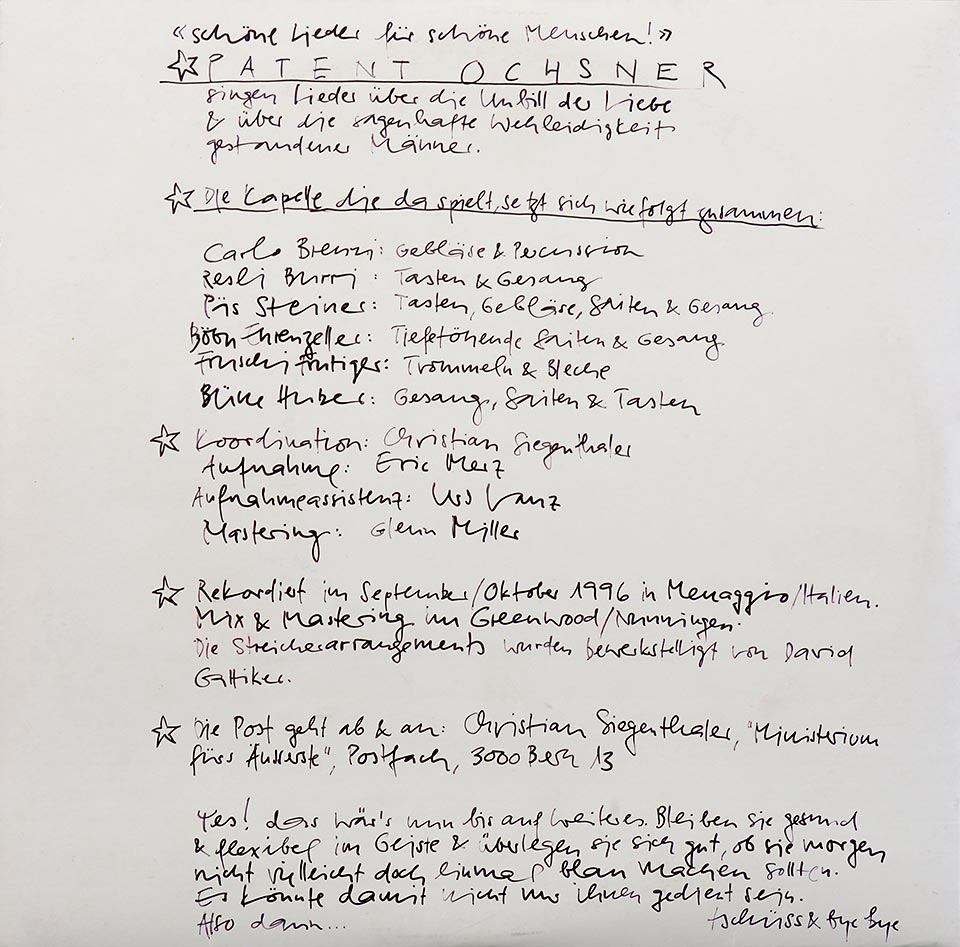 «schöne Lieder für schöne Menschen!»
☆ PATENT OCHSNER
singen Lieder über die Unbill der Liebe
& über die sagenhafte Wehleidigkeit
gestandener Männer.
☆ Die Kapelle die da spielt, setzt sich wie folgt zusammen:
Carlo Brenni: Gebläse & Percussion
Resli Burri: Tasten & Gesang
Päs Steiner: Tasten, Gebläse, Saiten & Gesang
Böbu Ehrenzeller: Tieftönende Saiten & Gesang
Frischi Frutiger: Trommeln & Bleche
Büne Huber: Gesang, Saiten & Tasten
☆ Koordination: Christian Siegenthaler
Aufnahme: Eric Merz
Aufnahmeassistenz: Urs Wanz
Mastering: Glenn Miller
☆ Rekordiert im September/Oktober 1996 in Menaggio/Italien.
Mix & Mastering im Greenwood/Nunningen.
Die Streicherarrangements wurden bewerkstelligt von David
Gattiker.
☆ Die Post geht ab & an: Christian Siegenthaler, "Ministerium
fürs Äusserste", Postfach, 3000 Bern 13
Yes! dass wär's nun bis auf weiteres. Bleiben sie gesund
& flexibel im Geiste & überlegen sie sich gut, ob sie morgen
nicht vielleicht doch einmal blau machen sollten.
Es könnte damit nicht nur ihnen gedient sein.
Also dann... tschüss & bye bye